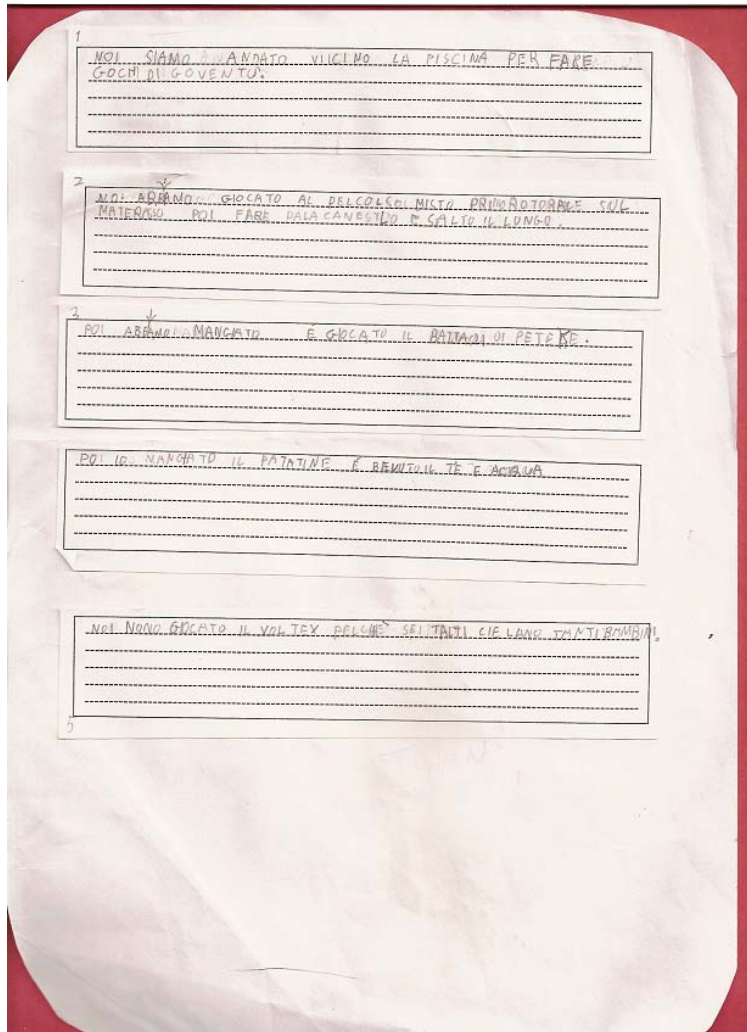 1
NOI SIAMO ANDATO VIICINO LA PISCINA PER FARE
GOCHI DI GOVENTU'.
2
NOI ABBANO GIOCATO AL PELCOLSO MISTO SUL
MATERASO POI FARE PALACANESTLO E SALTO IL LUNGO.
3
POI ABBANO MANGIATO E GIOCATO IL DI
POI IO MANGIATO IL PATATINE E BEVUTO IL TE E ACQUA
NOI NONO GIOCATO IL VOLTEX PELCHE' SEI TAITI CIE LANO TANTI BAMBINI.
5